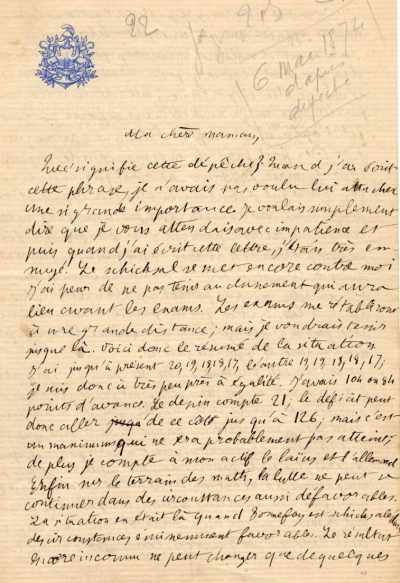 92
6 mai 1874
d'après
dépêche
Ma chère maman,
Que signifie cette dépêche? Quand j'ai écrit
cette phrase, je n'avais pas voulu lui attacher
une si grande importance. Je voulais simplement
dire que je vous attendais avec impatience et
puis quand j'ai écrit cette lettre, j'étais très en-
nuyé. Le schicksal se met encore contre moi
j'ai peur de ne pas tenir au classement qui aura
lieu avant les exams. Les exams me rétabliront
à une grande distance; mais je voudrais tenir
jusque là. Voici donc le résumé de la situation
J'ai jusqu'à présent 20, 19, 18, 19, 17, l'autre 19, 19, 18, 18, 17;
je suis donc à très peu près à égalité. J'avais 10 ou 84
points d'avance. Le dessin compte 21; le déficit peut
donc aller de ce côté jusqu'à 126; mais c'est
un maximum qui ne sera probablement pas atteint;
de plus je compte à mon actif le laïus et l'allemand
Enfin sur le terrain des maths, la lutte ne peut
continuer dans des circonstances aussi défavorables.
La situation en était là quand Bonnefoy est
des circonstances éminemment favorables. Le résultat
encore inconnu ne peut changer que de quelques